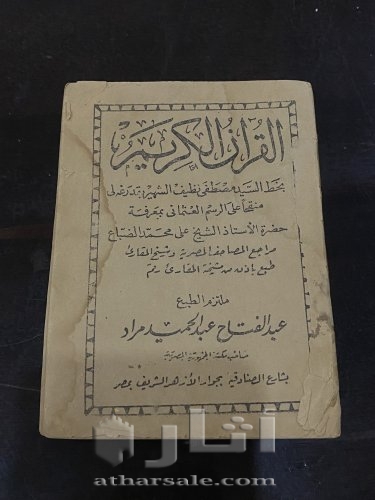 القرآن الكريم
بخط السيد مصطفى نظيف الشهير بقدرغه لى
منقحا على الرسم العثمانى بمعرفة
حضرة الأستاذ الشيخ على محمد الضباع
مراجع المصاحف المصرية وشيخ المقارئ
طبع بإذن من مشيخة المقارئ رقم
ملتزم الطبع
عبد الفتاح عبد الحميد مراد
صاحب مكتبة الجمهورية المصرية
بشارع الصنادقية بجوار الأزهر الشريف بمصر
آثار
atharsale.com